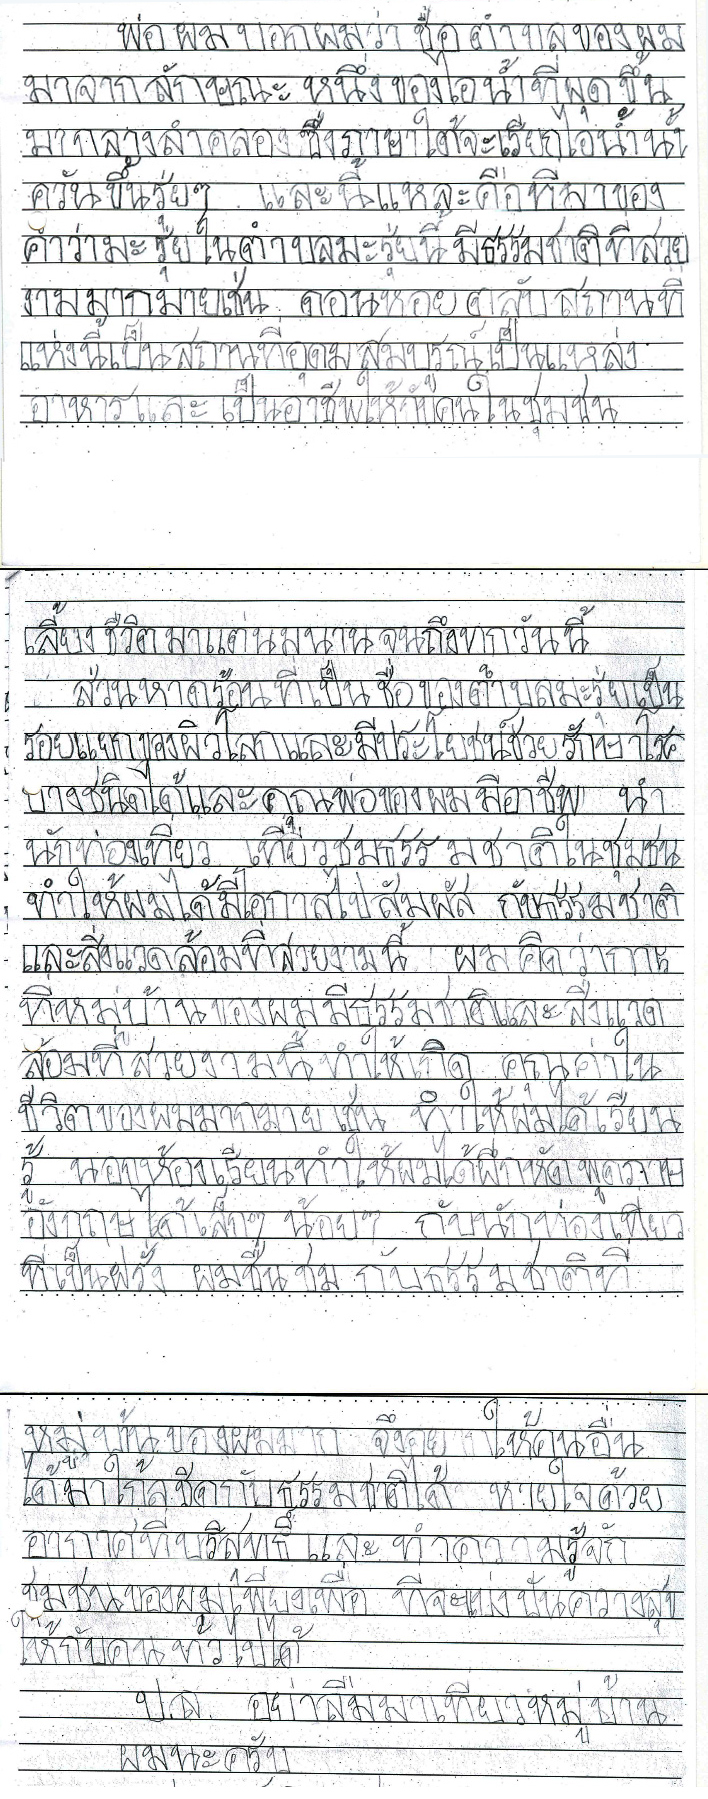 พ่อ ผม บอกผมว่า ชื่อ ตำบลของผม
มาจาก ลักษณะ หนึ่งของไอน้ำที่ผุดขึ้น
มากลางลำคลอง ซึ่งภาษาใต้จะเรียกไอน้ำน้ำ
ควันขึ้นรุ่ยๆ และนี้แหละคือที่มาของ
คำว่ามะรุ่ย ในตำบลมะรุ่ยนี้มีธรรมชาติที่สวย
งามมากมายเช่น ดอนหอย ตลับ สถานที่
แห่งนี้เป็นสถานที่อุดม สมบรณ์เป็นแหล่ง
อาหารและ เป็นอาชีพให้กับคนในชุมชน
เลี้ยงชีวิตมาแต่นมนาน จนถึงทุกวันนี้
ส่วนหาดร้อนที่เป็นชื่อของตำบลมะรุ่ยเป็น
รอยแยกของผิวโลกและมีประโยชน์ช่วยรักษาโรค
บางชนิดได้และคุณพ่อของผมมีอาชีพ นำ
นักท่องเที่ยว เที่ยวชมธรรมชาติในชุมชน
ทำให้ผมได้มีโอกาสไปสัมผัส กับธรรมชาติ
และสิ่งแวดล้อมที่สวยงามนี้ ผมคิดว่าการ
ที่หมู่บ้านของผมมีธรรมชาติและสิ่งแวด
ล้อมที่สวยงามนี้ทำให้เกิด คุณค่าใน
ชีวิตของผมมากมายเช่น ทำให้ผมได้เรียน
รู้ นอกห้องเรียนทำให้ผมได้ฝึกหัดพูดภาษ
อังกฤษได้เล็กๆ น้อยๆ กับนักท่องเที่ยว
ที่เป็นฝรั่ง ผมชื่นชม กับธรรมชาติที่
หมู่บ้านของผมมาก จึงอยากให้คนอื่น
ได้มาใกล้ชิดกับธรรมชาติได้ หายใจด้วย
อากาศที่บริสุทธิ์และ ทำความรู้จัก
ชุมชนของผมเพียงเพื่อ ที่จะแบ่งปันความสุข
ให้กับคนทั่วไปได้
ป.ล. อย่าลืมมาเที่ยวหมู่บ้าน
ผมนะครับ